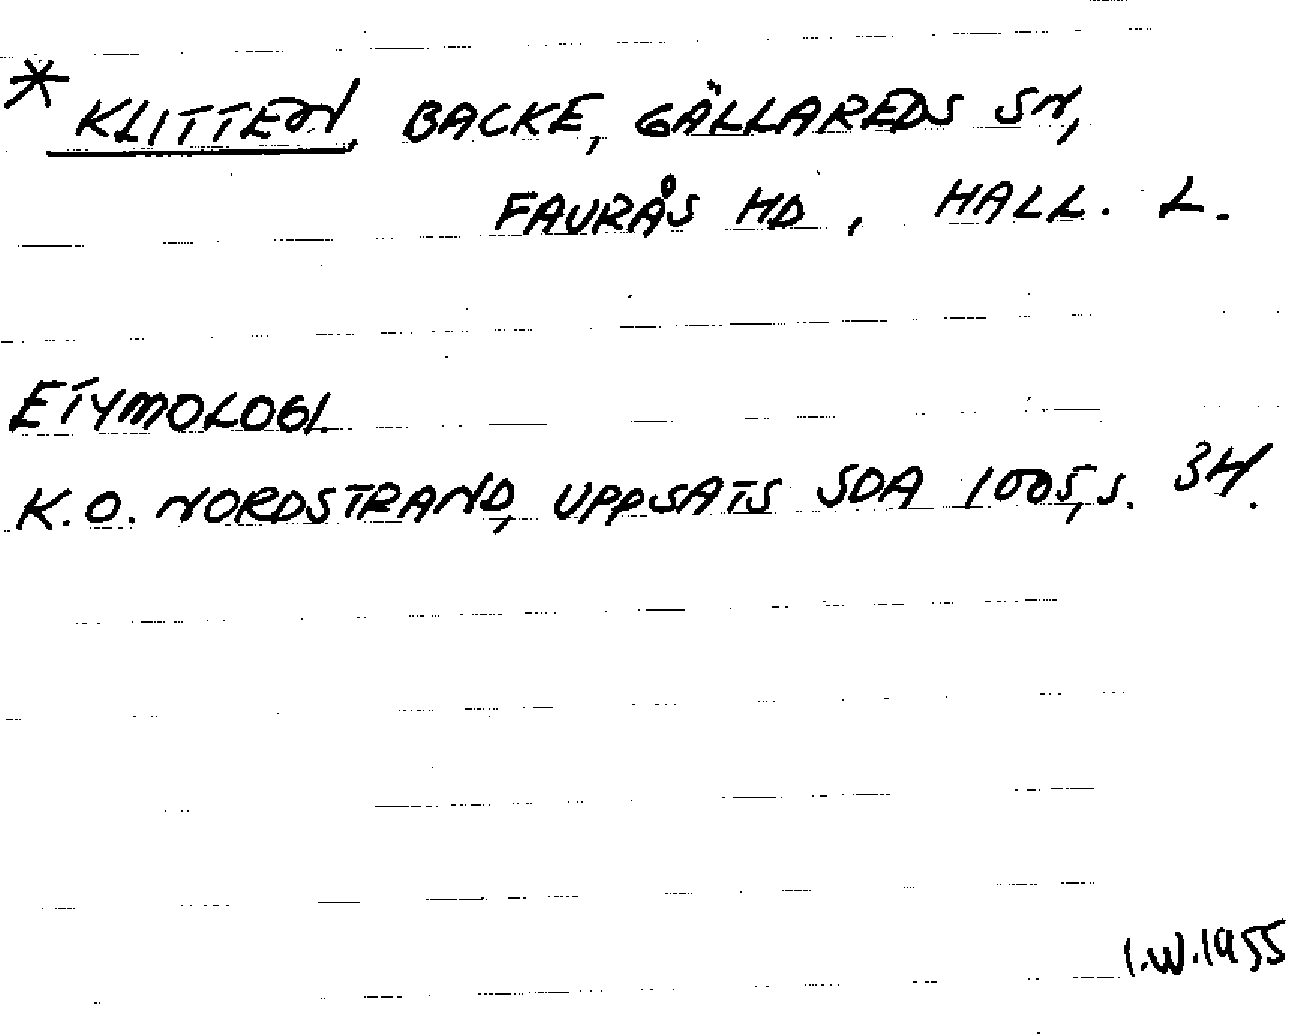 * KLITTEN, BACKE, GÄLLAREDS SN,
FAURÅS HD, HALL. L.
ETYMOLOGI.
K.O. NORDSTRAND, UPPSATS SDA 1005, S. 34.
I.W.1955